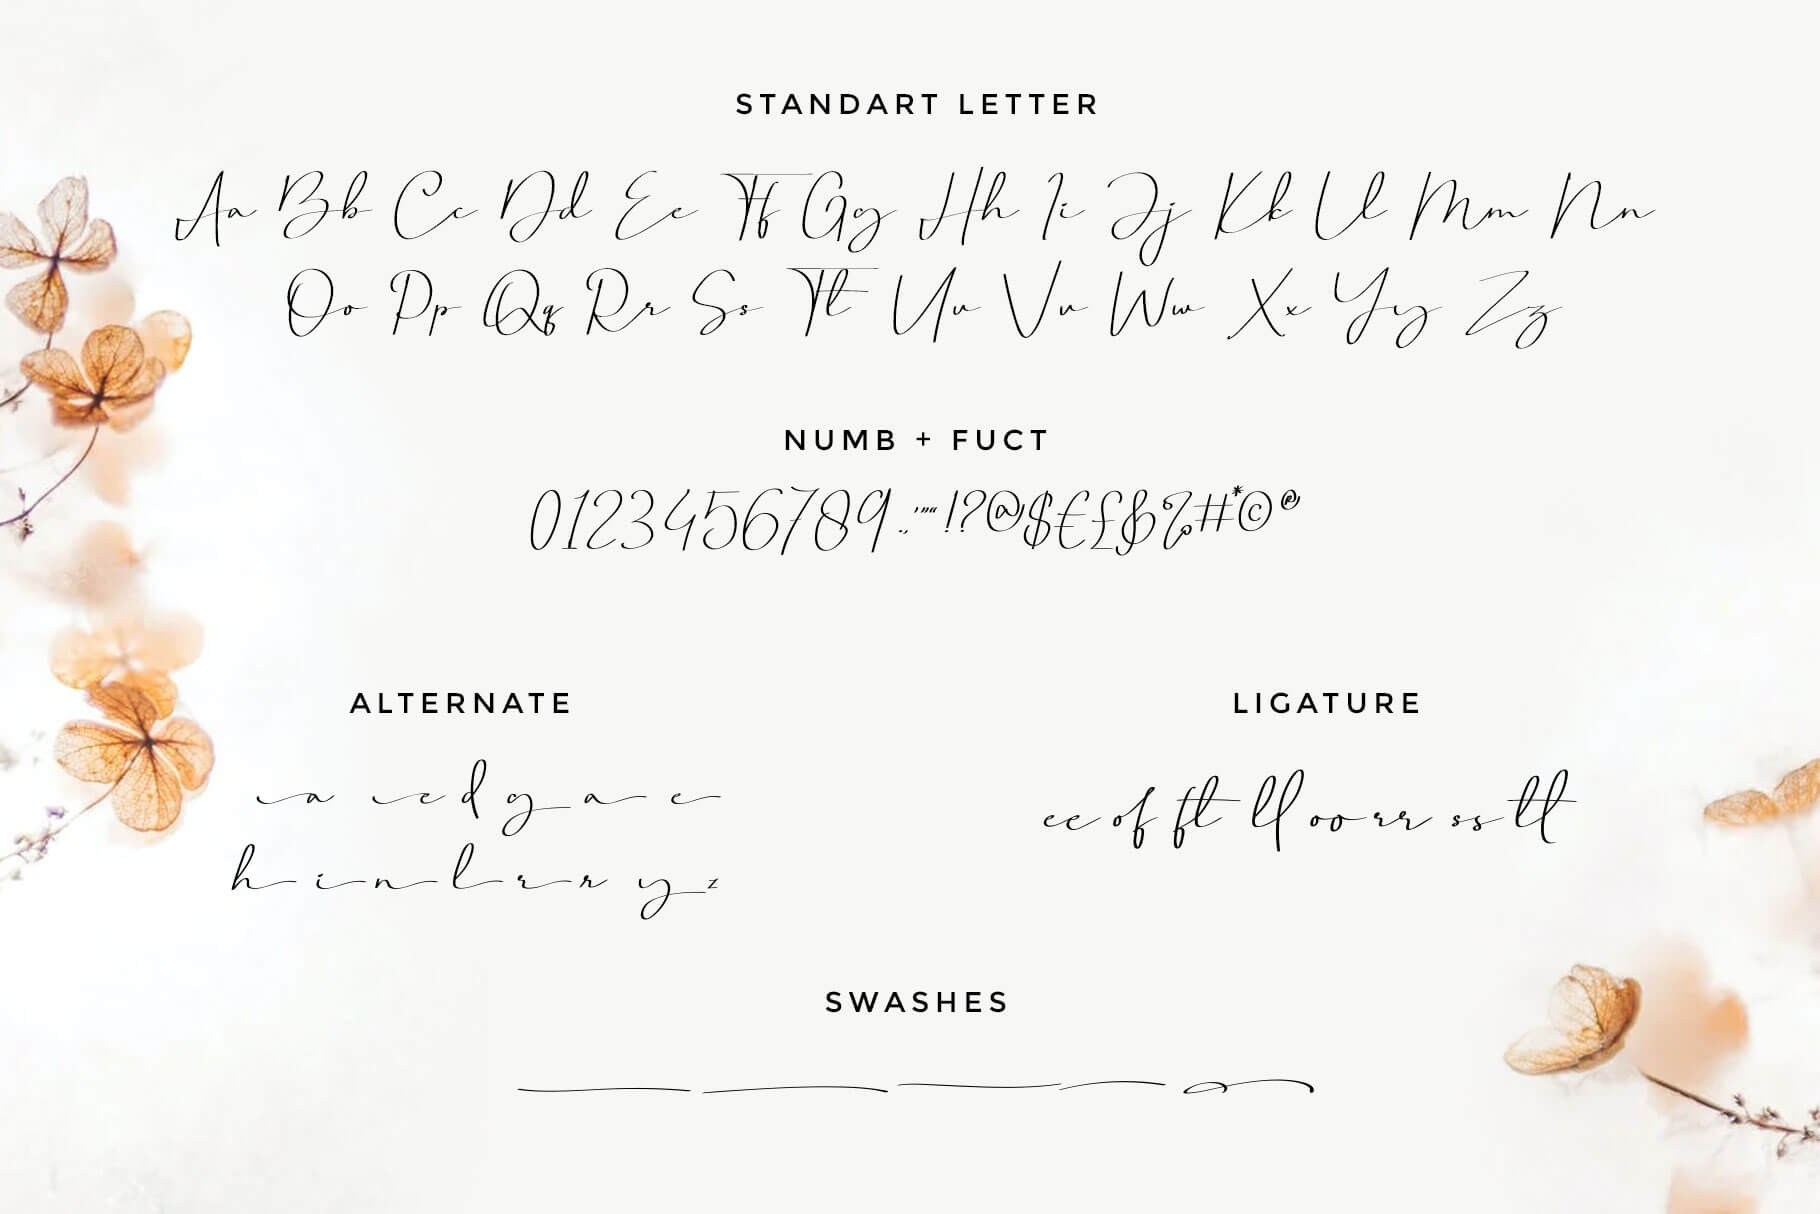 STANDART LETTER
Aa Bb Cc Dd Ee Ff Gg Hh Ii Jj Kk Ll Mm Nn
Oo Pp Qq Rr Ss Tt Uu Vv Ww Xx Yy Zz
NUMB + FUCT
0123456789.,'"“!?@$€£&%#*©®
ALTERNATE
a c d g a e
h i n l r r y z
LIGATURE
ee of ft ll oo rr ss tt
SWASHES